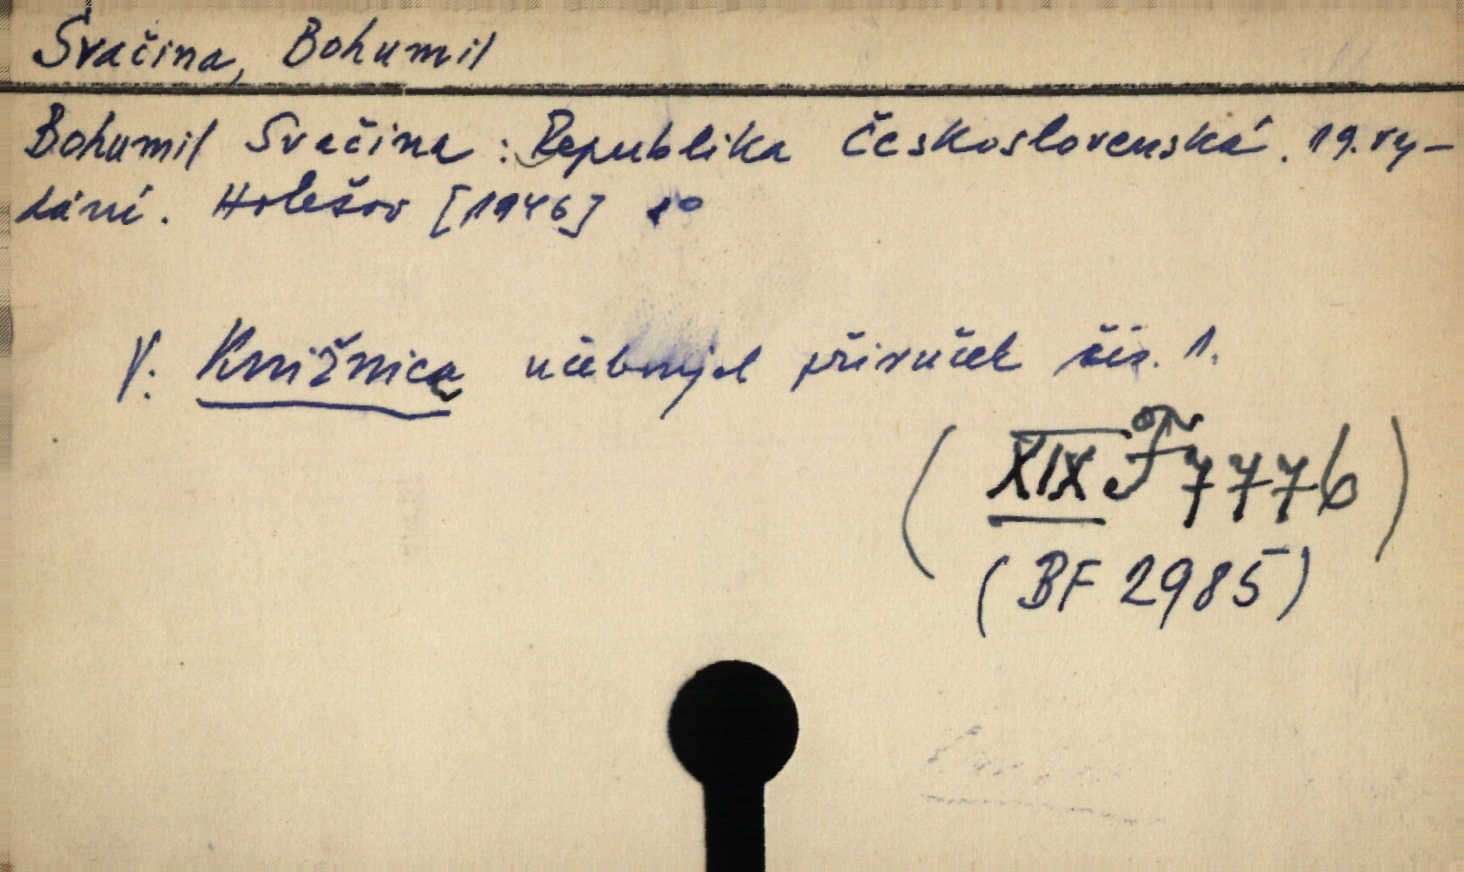 Svačina, Bohumil
Bohumil Svačina: Republika Československá. 19. vy-
dání. Holešov [1946] 8°
V. Knižnica učebných příruček čís. 1.
(XIX F 7776)
(BF 2985)